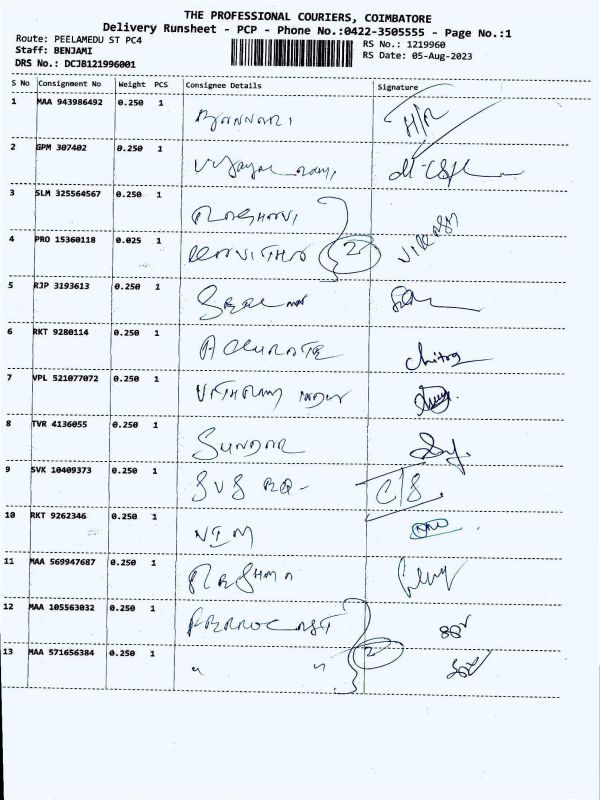 THE PROFESSIONAL COURIERS, COIMBATORE
Delivery Runsheet - PCP - Phone No.:0422-3505555 - Page No.:1
Route: PEELAMEDU ST PC4
RS No.: 1219960
Staff: BENJAMI
RS Date: 05-Aug-2023
DRS No.: DCJB121996001
S No Consignment No Weight PCS Consignee Details Signature
1 MAA 943986492 0.250 1 BANNARI H/R
2 GPM 307402 0.250 1
3 SLM 325564567 0.250 1
4 PRO 15360118 0.025 1 2
5 RJP 3193613 0.250 1
6 RKT 9280114 0.250 1 ACCURATE Chitra
7 VPL 521077072 0.250 1
8 TVR 4136055 0.250 1 SUNDAR
9 SVK 10409373 0.250 1 SVS C/S
10 RKT 9262346 0.250 1
11 MAA 569947687 0.250 1 RESHMA
12 MAA 105563032 0.250 1
13 MAA 571656384 0.250 1 " " 2